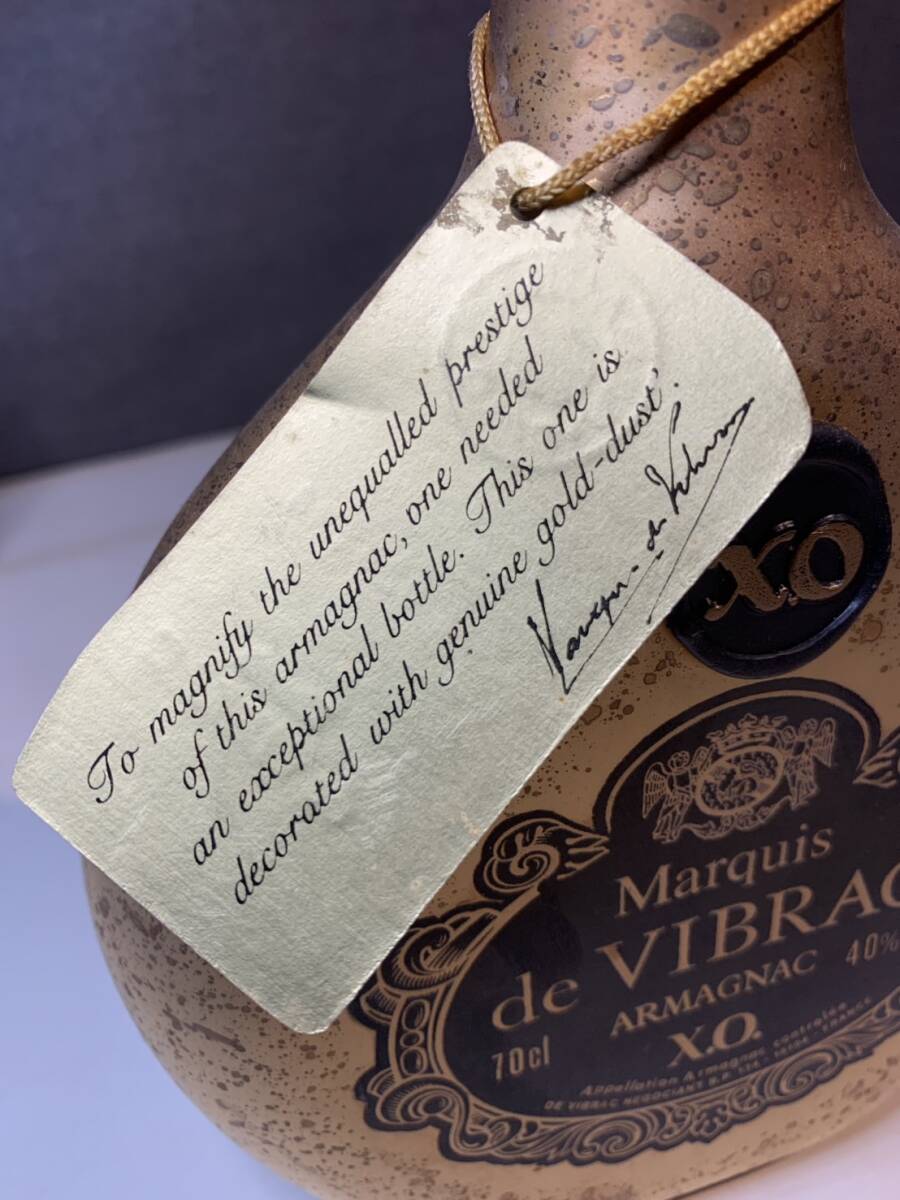 To magnify the unequalled prestige
of this armagnac, one needed
an exceptional bottle. This one is
decorated with genuine gold-dust'.
X.O
Marquis
de VIBRAC
ARMAGNAC 40%
70cl X.O.
Appellation Armagnac controlée
DE VIBRAC NEGOCIANT B.P. FRANCE